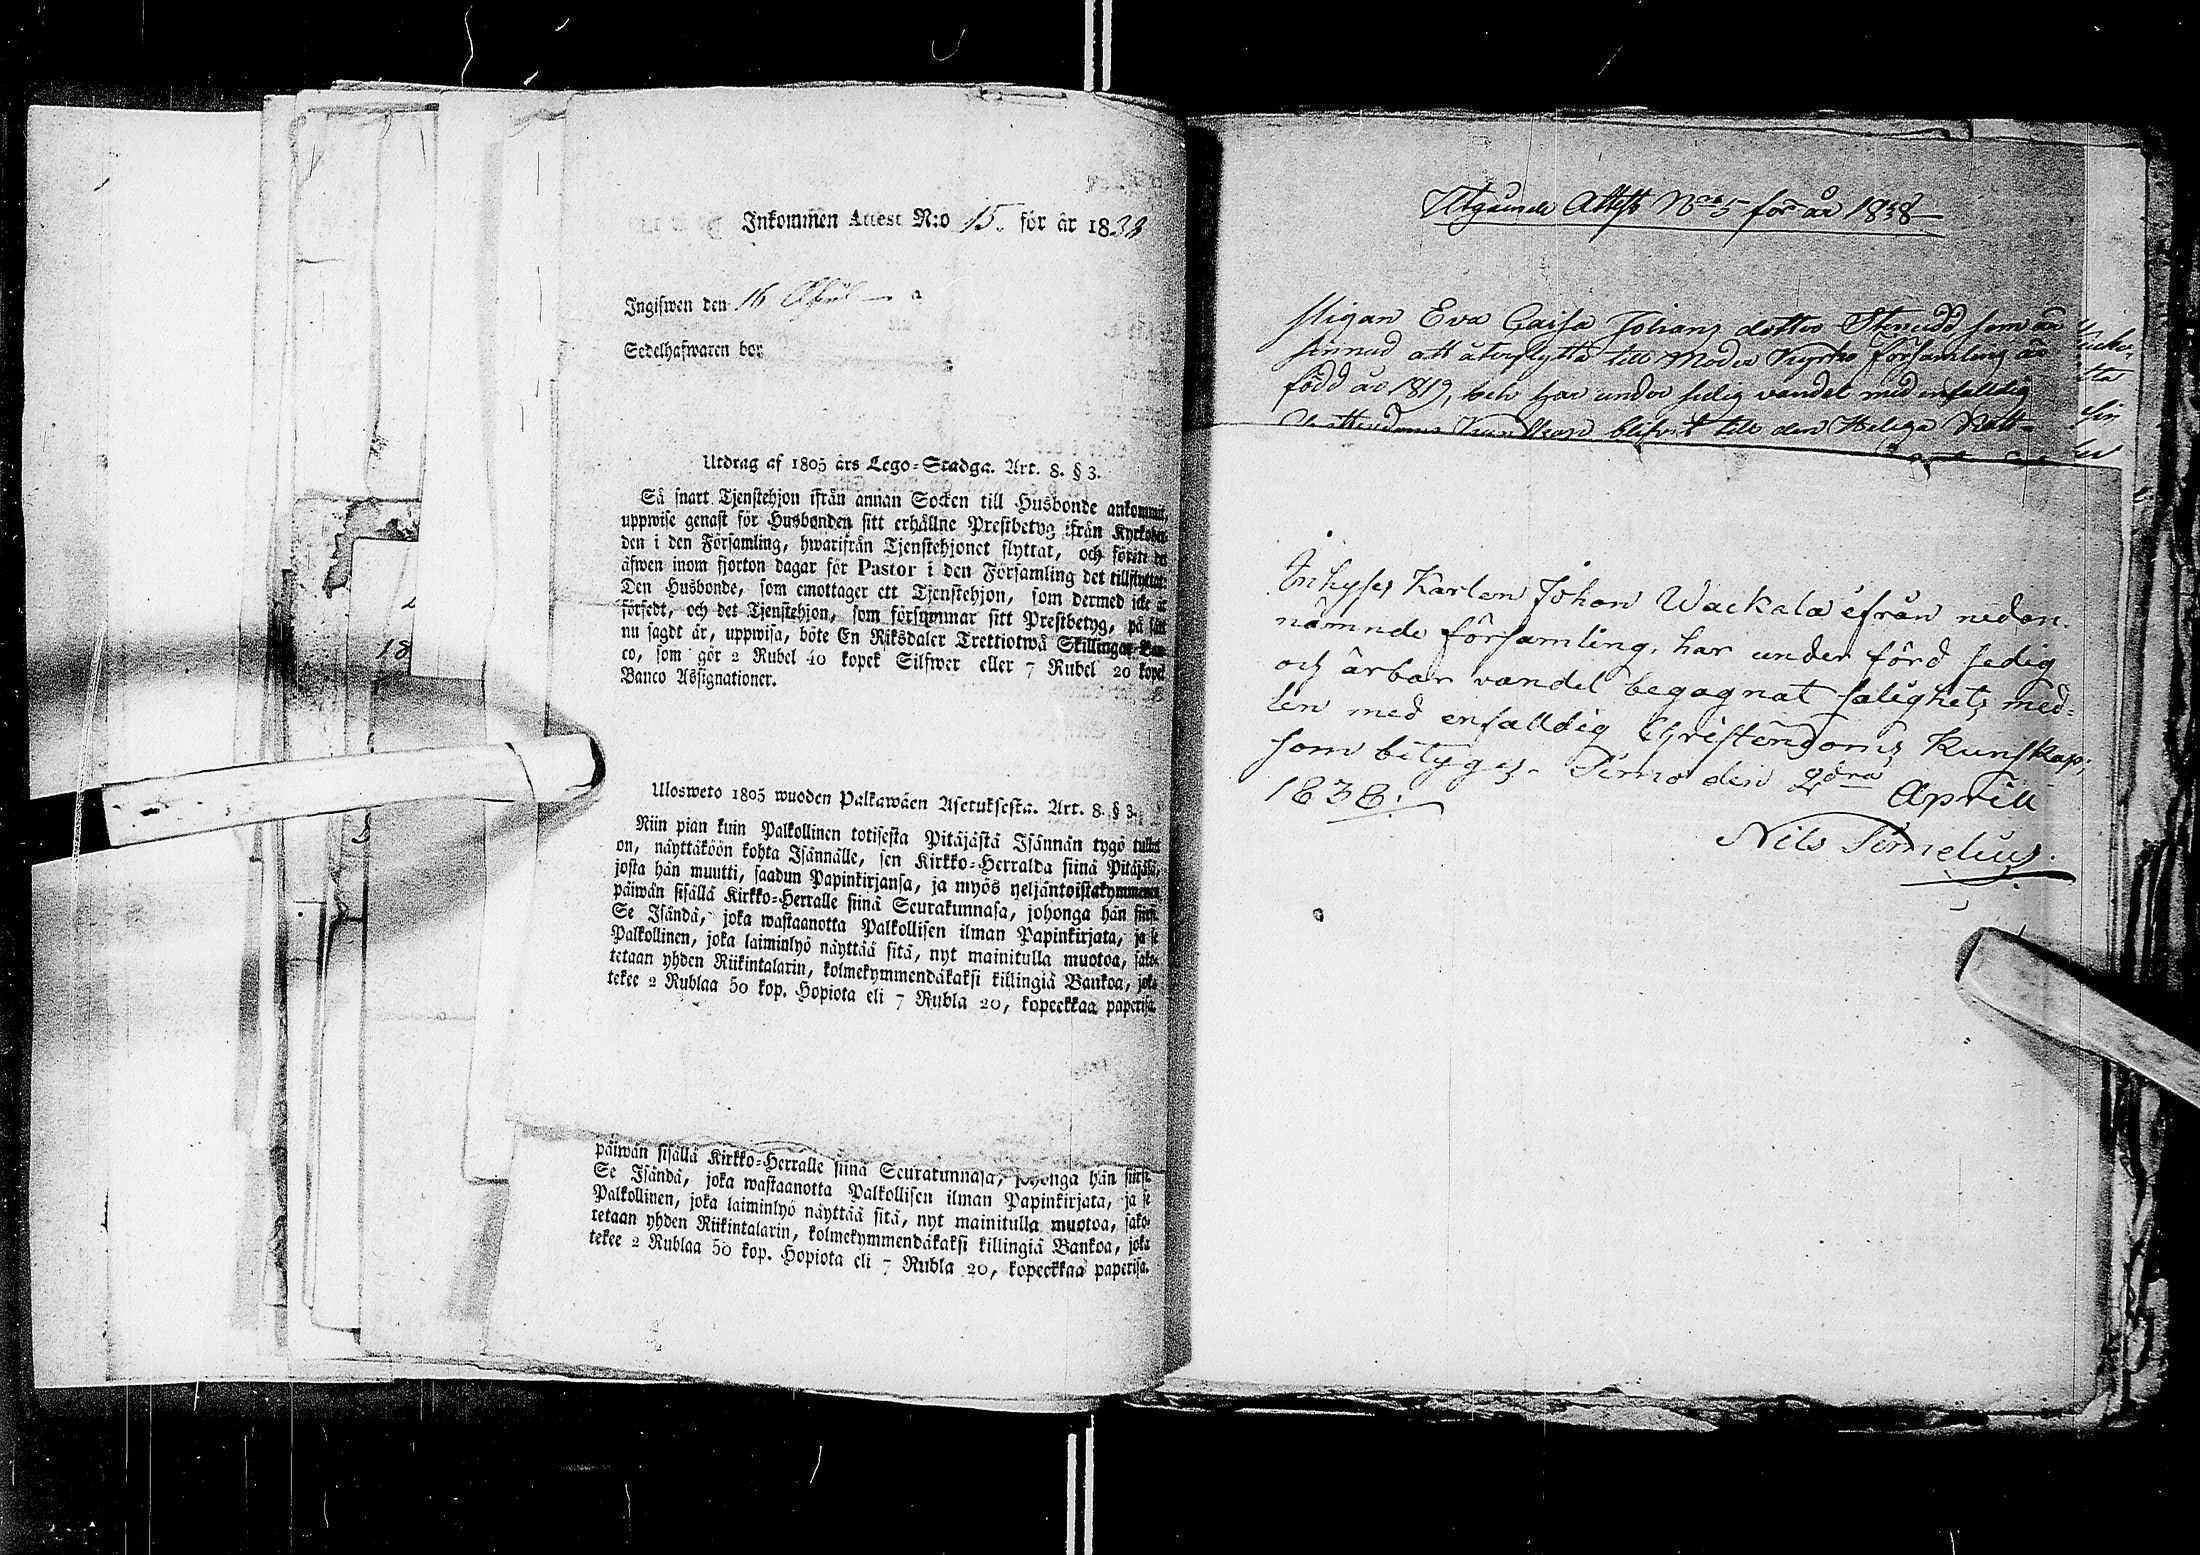 Inkommen Attest N:o 15. för år 1838
Ingifwen den 16 April
Sedelhafwaren bor
Utdrag af 1805 års Lego-Stadga. Art. 8. § 3.
Så snart Tjenstehjon ifrån annan Socken till Husbonde ankommit,
uppwise genast för Husbonden sitt erhållne Prestbetyg ifrån Kyrkoher-
den i den Församling, hwarifrån Tjenstehjonet flyttat, och förete det
äfwen inom fjorton dagar för Pastor i den Församling det tillflyttat.
Den Husbonde, som emottager ett Tjenstehjon, som dermed icke är
försedt, och det Tjenstehjon, som försummar sitt Prestbetyg, på sätt
nu sagdt är, uppwisa, böte En Riksdaler Trettiotwå Skillingar Ban-
co, som gör 2 Rubel 40 kopek Silfwer eller 7 Rubel 20 kopek
Banco Assignationer.
Ulosweto 1805 wuoden Palkawäen Asetuksesta. Art. 8. § 3.
Niin pian kuin Palkollinen totisesta Pitäjästä Isännän tygö tullut
on, näyttäköön kohta Isännälle, sen Kirkko-Herralda siinä Pitäjäsä,
josta hän muutti, saadun Papinkirjansa, ja myös neljäntoistakymmenen
päiwän sisällä Kirkko-Herralle siinä Seurakunnasa, johonga hän siirsi.
Se Isändä, joka wastaanotta Palkollisen ilman Papinkirjata, ja se
Palkollinen, joka laiminlyö näyttää sitä, nyt mainitulla muotoa, sako-
tetaan yhden Riikintalarin, kolmekymmendäkaksi killingiä Bankoa, joka
tekee 2 Rublaa 50 kop. Hopiota eli 7 Rubla 20, kopeekkaa paperisa.
päiwän sisällä Kirkko-Herralle siinä Seurakunnasa, johonga hän siirsi.
Se Isändä, joka wastaanotta Palkollisen ilman Papinkirjata, ja se
Palkollinen, joka laiminlyö näyttää sitä, nyt mainitulla muotoa, sako-
tetaan yhden Riikintalarin, kolmekymmendäkaksi killingiä Bankoa, joka
tekee 2 Rublaa 50 kop. Hopiota eli 7 Rubla 20, kopeekkaa paperisa.
Utgående Attest No 5 för år 1838
Pigan Eva Caisa Johans dotter Stenudd som är
sinnad att återflytta till Moder Kyrko församling är
född år 1819, och har under sedig vandel med enfalldig
Christendoms Kundskap blifvit till den Heliga Natt-
Inhyses Karlen Johan Wackala ifrån nedan-
nämnde församling, har under förd sedig
och ärbar vandel begagnat salighets med-
len med enfalldig Christendoms Kunskap;
som betyges. Simo den 2dra April
1838.
Nils Simelius.